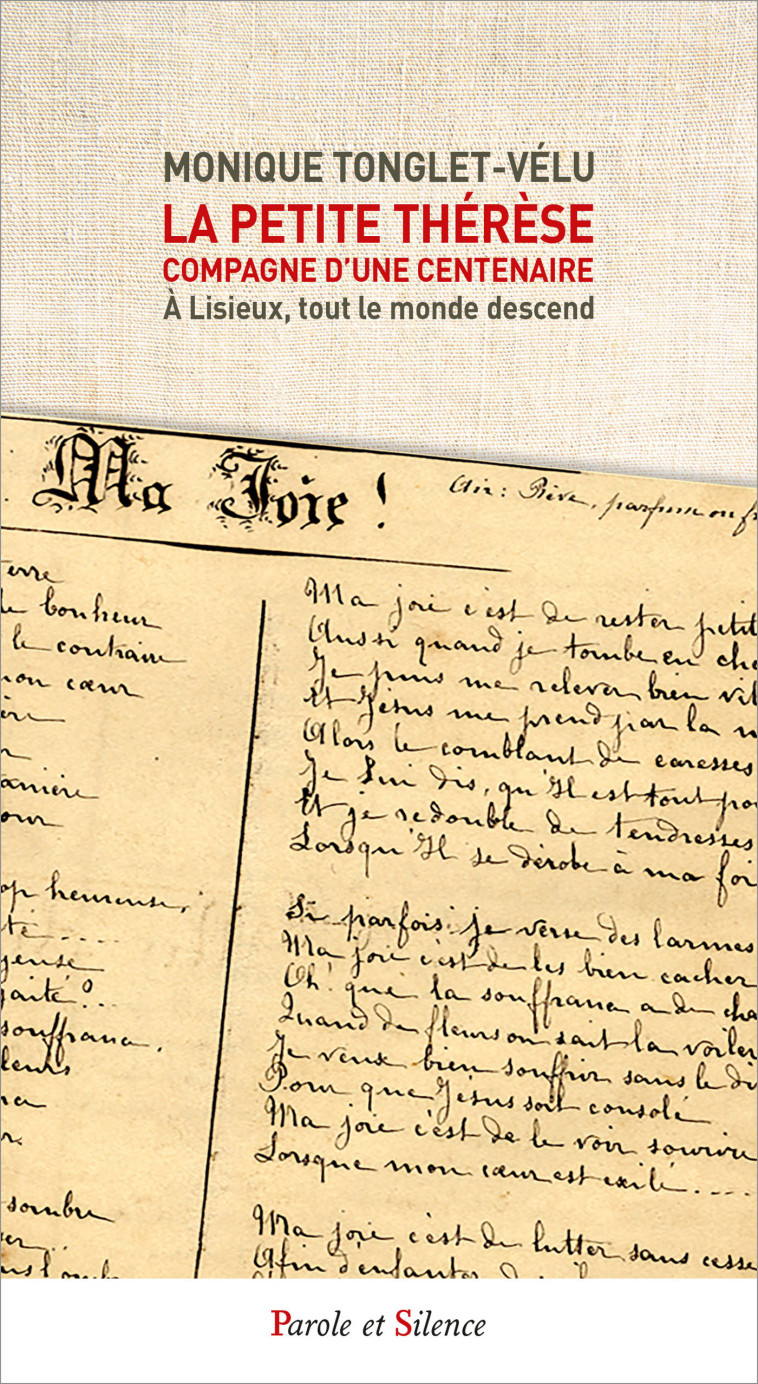 MONIQUE TONGLET-VÉLU
LA PETITE THÉRÈSE
COMPAGNE D'UNE CENTENAIRE
À Lisieux, tout le monde descend
Ma Joie !
Air : Rêve, parfum ou fr
terre
le bonheur
le contraire
mon cœur
ière
anière
our
op heureuse,
té ....
jeuse
gaité ?..
souffrance.
leurs
sombre
Ma joie c'est de rester petit
Aussi quand je tombe en che
Je puis me relever bien vit
Et Jésus me prend par la m
Alors le comblant de caresses
Je Lui dis, qu'Il est tout po
Et je redouble de tendresses
Lorsqu'Il se dérobe à ma foi
Si parfois je verse des larmes
Ma joie c'est de les bien cacher
Oh! que la souffrance a de cha
Quand de fleurs on sait la voiler
Je veux bien souffrir sans le di
Pour que Jésus soit consolé
Ma joie c'est de le voir sourire
Lorsque mon cœur est exilé....
Ma joie c'est de lutter sans cesse
Afin d'enfanter
Parole et Silence